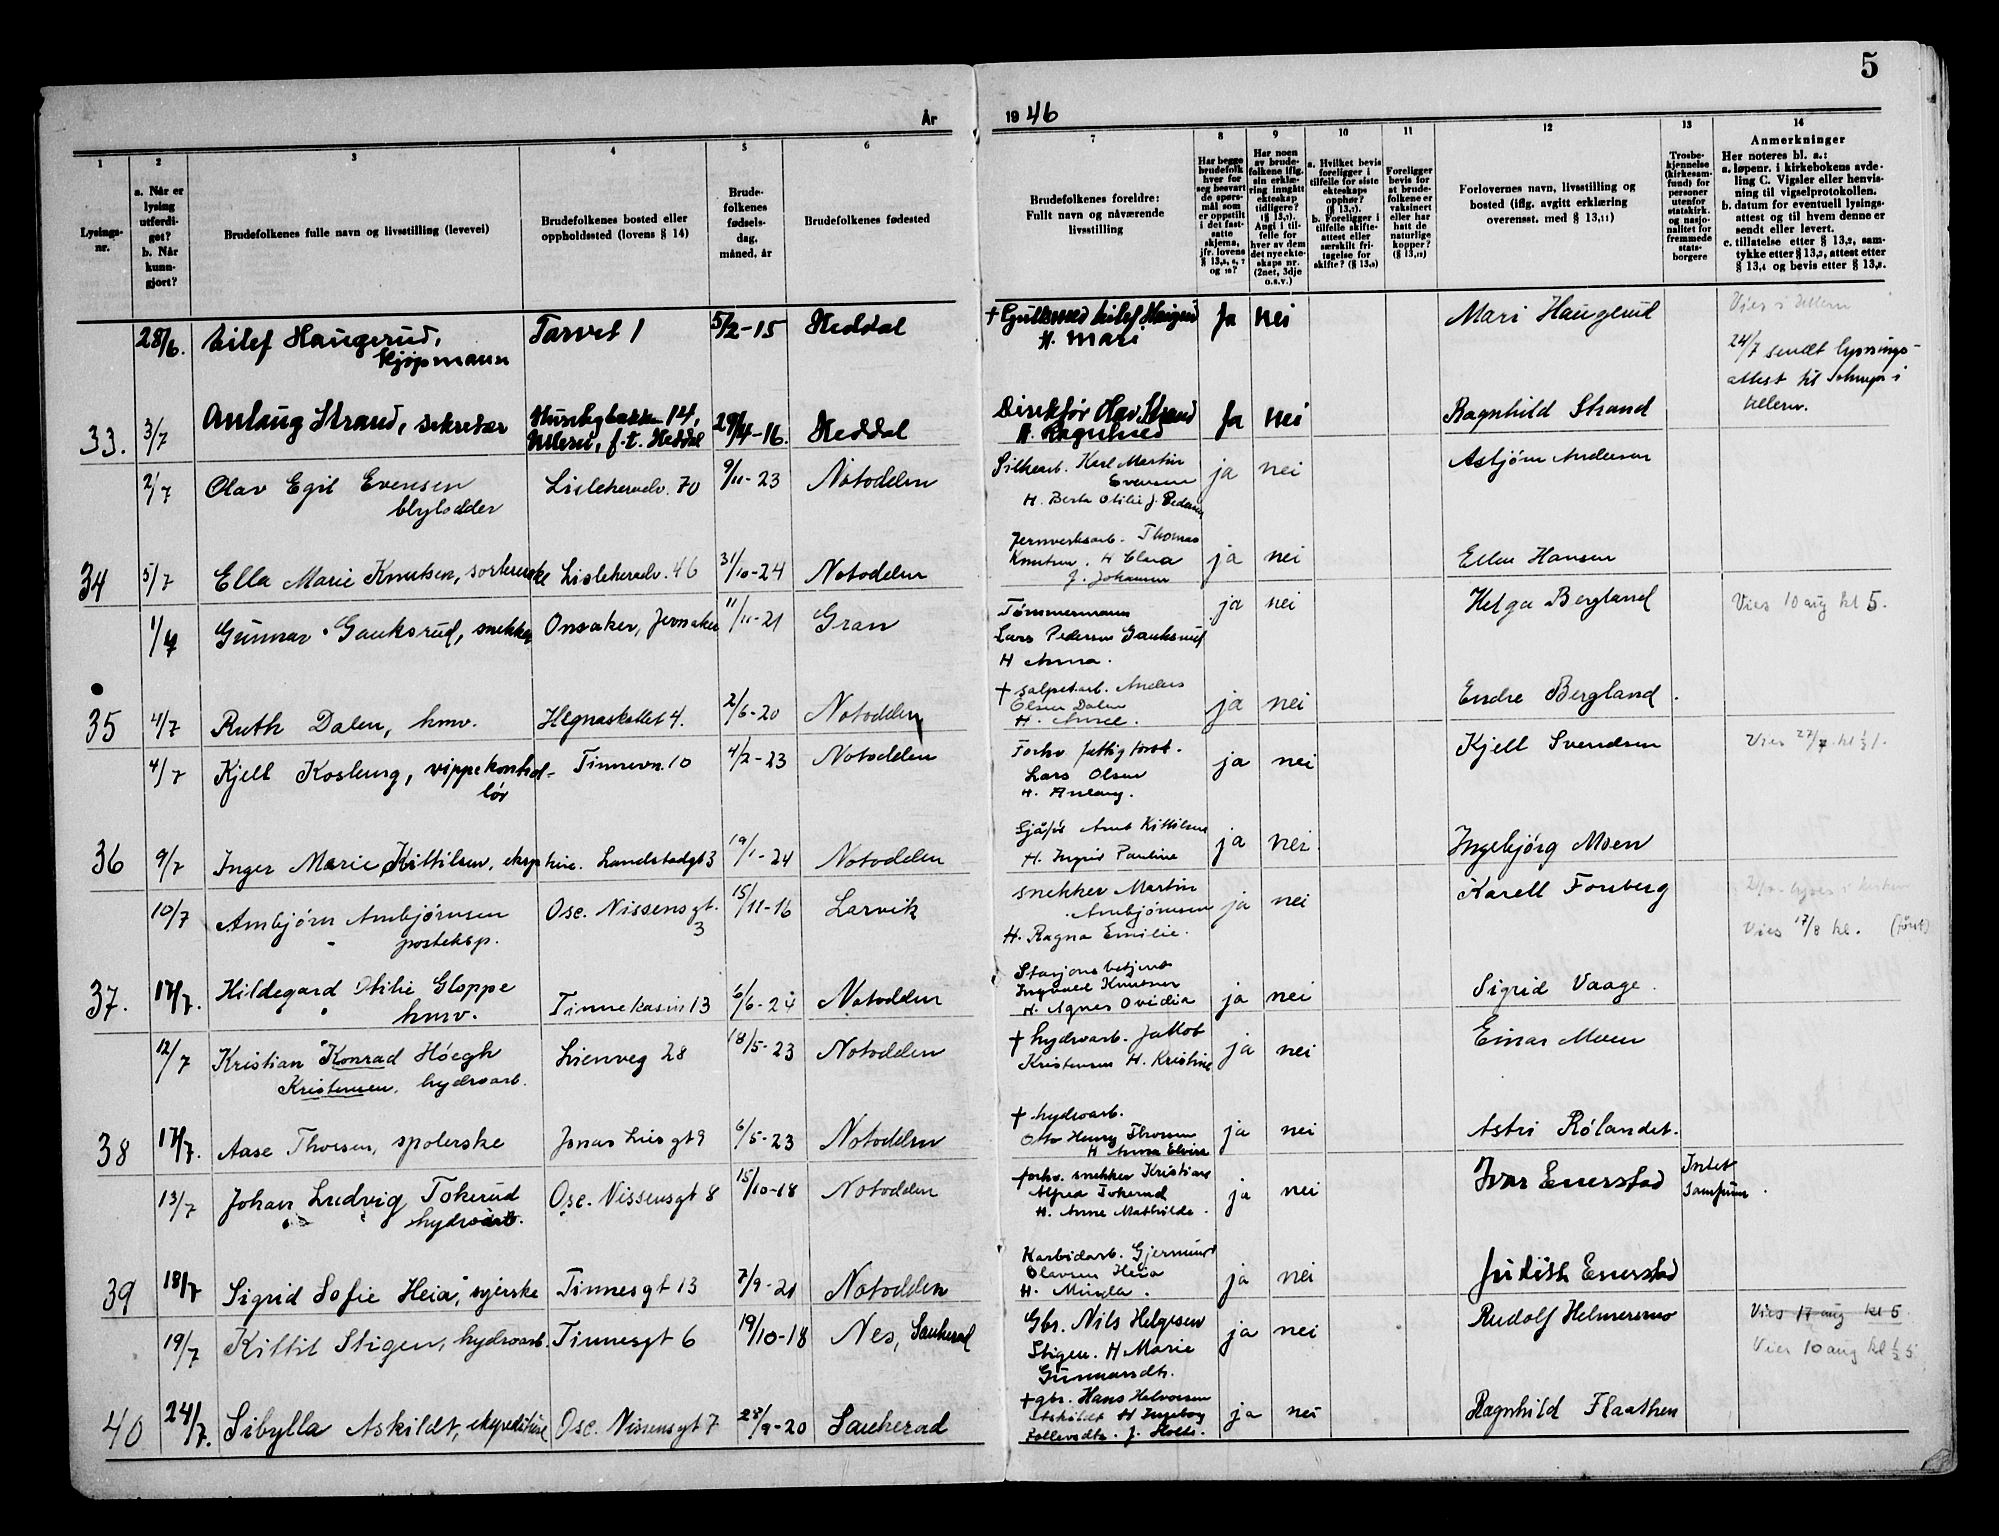 5
År
19 46
1
2
3
4
5
6
7
8
9
10
11
12
13
14
Lysings-
nr.
a. Når er
lysing
utferdi-
get?
b. Når
kunn-
gjort?
Brudefolkenes fulle navn og livsstilling (levevei)
Brudefolkenes bosted eller
oppholdssted (lovens § 14)
Brude-
folkenes
fødsels-
dag,
måned, år
Brudefolkenes fødested
Brudefolkenes foreldre:
Fullt navn og nåværende
livsstilling
Har begge
brudefolk
hver for
seg besvart
de spørs-
mål som
er oppstilt
i det fast-
satte
skjema,
jfr. lovens
Har noen
av brude-
folkene iflg.
sin erklæ-
ring inngått
ekteskap
tidligere?
Angi i til-
felle for
hver av dem
det nye ekte-
skaps nr.
(2net, 3dje
o.s.v.)
a. Hvilket bevis
foreligger i
tilfelle for siste
ekteskaps
opphør?
b. Foreligger i
tilfelle skifte-
attest eller
særskilt fri-
tagelse for
skifte?
Foreligger
bevis for
at brude-
folkene er
vaksinert
eller har
hatt de
naturlige
kopper?
Forlovernes navn, livsstilling og
bosted (iflg. avgitt erklæring
overensst. med § 13,11)
Trosbe-
kjennelse
(kirkesam-
fund) for
personer
utenfor
statskirk.
og nasjo-
nalitet for
fremmede
stats-
borgere
Anmerkninger
Her noteres bl. a.:
a. løpenr. i kirkebokens avde-
ling C. Vigsler eller henvis-
ning til vigselprotokollen.
b. datum for eventuell lysings-
attest og til hvem denne er
sendt eller levert.
c. tillatelse etter § 13,2, sam-
tykke etter § 13,3, attest etter
§ 13,4 og bevis etter § 13,8.
28/6. Eilef Haugerud, Torvet 1 5/2-15 Heddal
kjøpmann
H. Mari Ja nei Mari Haugerud
24/7 sendt lysnings-
attest til
Ullern.
33. 3/7 Anlaug Strand, sekretær 14, 29/4-16. Heddal
Ullern, f.t. Heddal
Olav Strand Ja nei Ragnhild Strand
H. Ragnhild
2/7 Olav Egil Evensen Lisleheradv. 70 9/11-23 Notodden
blylodder
Karl Martin ja nei Asbjørn Andersen
Evensen
34 5/7 Ella Marie Knutsen, sorterske Lisleheradv. 46 31/10-24 Notodden
Jernverksarb. Thomas
Knutsen. H Clara ja nei Ellen Hansen
f. Johansen
1/7 Gunnar Gauksrud, snekker Onsaker, Jevnaker 11/11-21 Gran
Tømmermann ja nei Helga Bergland Vies 10 aug kl 5.
Lars Pedersen Gauksrud
H Anna.
35 4/7 Ruth Dalen, hmv. 2/6-20 Notodden
+ salpetarb. Anders
Olsen Dalen ja nei Endre Bergland.
4/7 Kjell Kosberg, vippekontrol- Tinnevn. 10 4/2-23 Notodden
lør
Forhv. fattigforst. ja nei Kjell Svendsen Vies 27/7 kl ½1.
Lars Olsen
H. Anlaug.
36 9/7 Inger Marie Kittilsen, Landstadgt 3 19/1-24 Notodden
Arnt Kittilsen ja nei. Ingebjørg Moen
H. Ingrid Pauline
10/7 Arnbjørn Arnbjørnsen Osc. Nissensgt. 15/11-16 Larvik
posteksp. 3
snekker Martin
Arnbjørnsen ja nei Karell Fonberg
H. Ragna Emilie.
Vies 17/8 kl. (først)
37. 17/7. Hildegard Otilie Gloppe Tinnekasin 13 6/6-24 Notodden
hmv.
Stasjonsbetjent
Ingvald Knutsen ja nei Sigrid Vaage.
H. Agnes Ovidia
12/7 Kristian Konrad Høegh Lienveg 28 18/5-23 Notodden
Kristensen, hydroarb.
+ hydroarb. Jakob ja nei Einar Moen
Kristensen H. Kristine
38 17/7. Aase Thorsen, spolerske Jonas Lies gt 9 6/5-23 Notodden
+ hydroarb.
Otto Henry Thorsen ja nei Astri Rølandet.
H Anna Elvira
13/7 Johan Ludvig Tokerud Osc. Nissensgt 8 15/10-18 Notodden
hydroarb.
forhv. snekker Kristian
Alfred Tokerud ja nei Ivar Enerstad Intet
H. Anne Mathilde. samfunn.
39 18/7 Sigrid Sofie Heia, syerske Tinnesgt 13 7/9-21 Notodden
Karbidarb. Gjermund
Olavsen Heia ja nei Judith Enerstad
H. Minda.
19/7 Kittil Stigen, hydroarb. Tinnesgt 6 19/10-18 Nes, Sauherad
Gbr. Nils Helgesen ja nei Rudolf Helmersmo Vies 17 aug kl 5.
Stigen. H Marie Vies 10 aug kl ½ 5
Gunnarsdtr.
40 24/7. Sibylla Askildt, ekspeditrise Osc. Nissensgt 7 23/9-20 Sauherad
+ gbr. Hans Halvorsen
Askildt H Ingeborg ja nei Ragnhild Flaathen